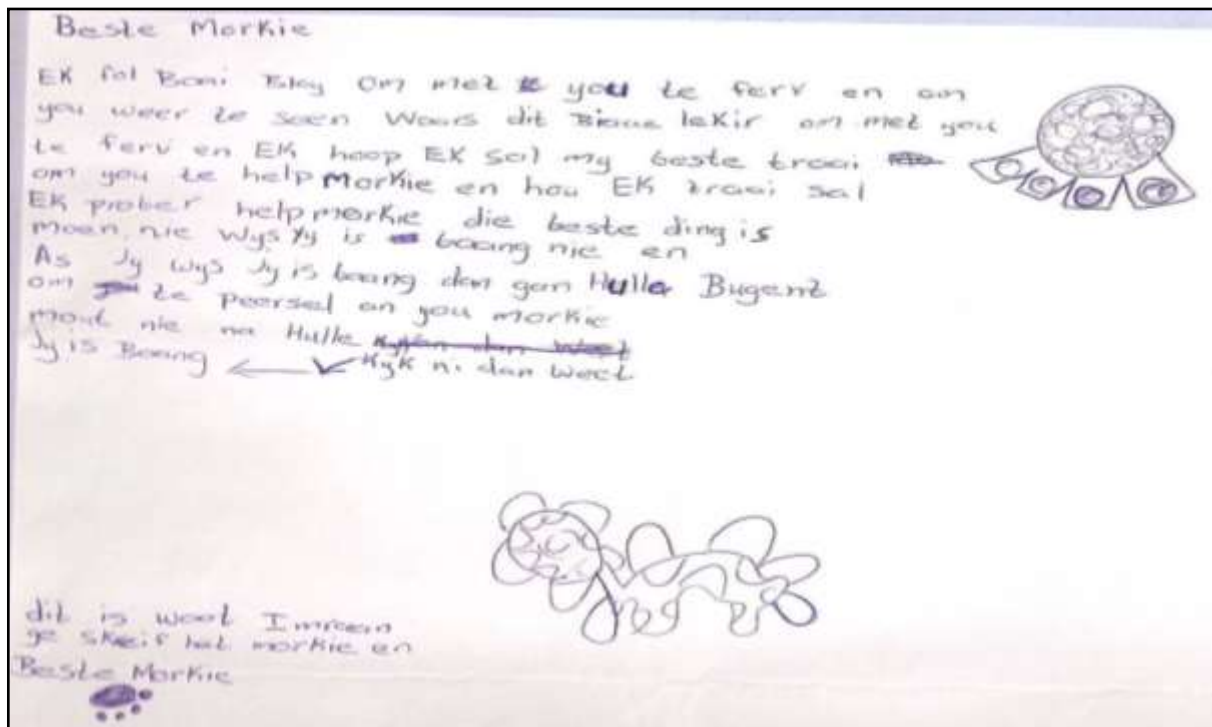 Beste Morkie
EK fol Baai Blay om met you te ferv en om
you weer te seen Waars dit Biaue lekir om met you
te ferv en EK hoop EK sal my beste traai
om you te help Morkie en hou EK traai sal
EK prober help morkie die beste ding is
moen nie wys Jy is baang nie en
As Jy wys Jy is baang dan gan Hulle Bugent
om te Peersel an you morkie
mout nie na Hulle
Jy is Baang ← Kyk ni dan weet
dit is woot Imraan
ge skeif hat morkie en
Beste Morkie